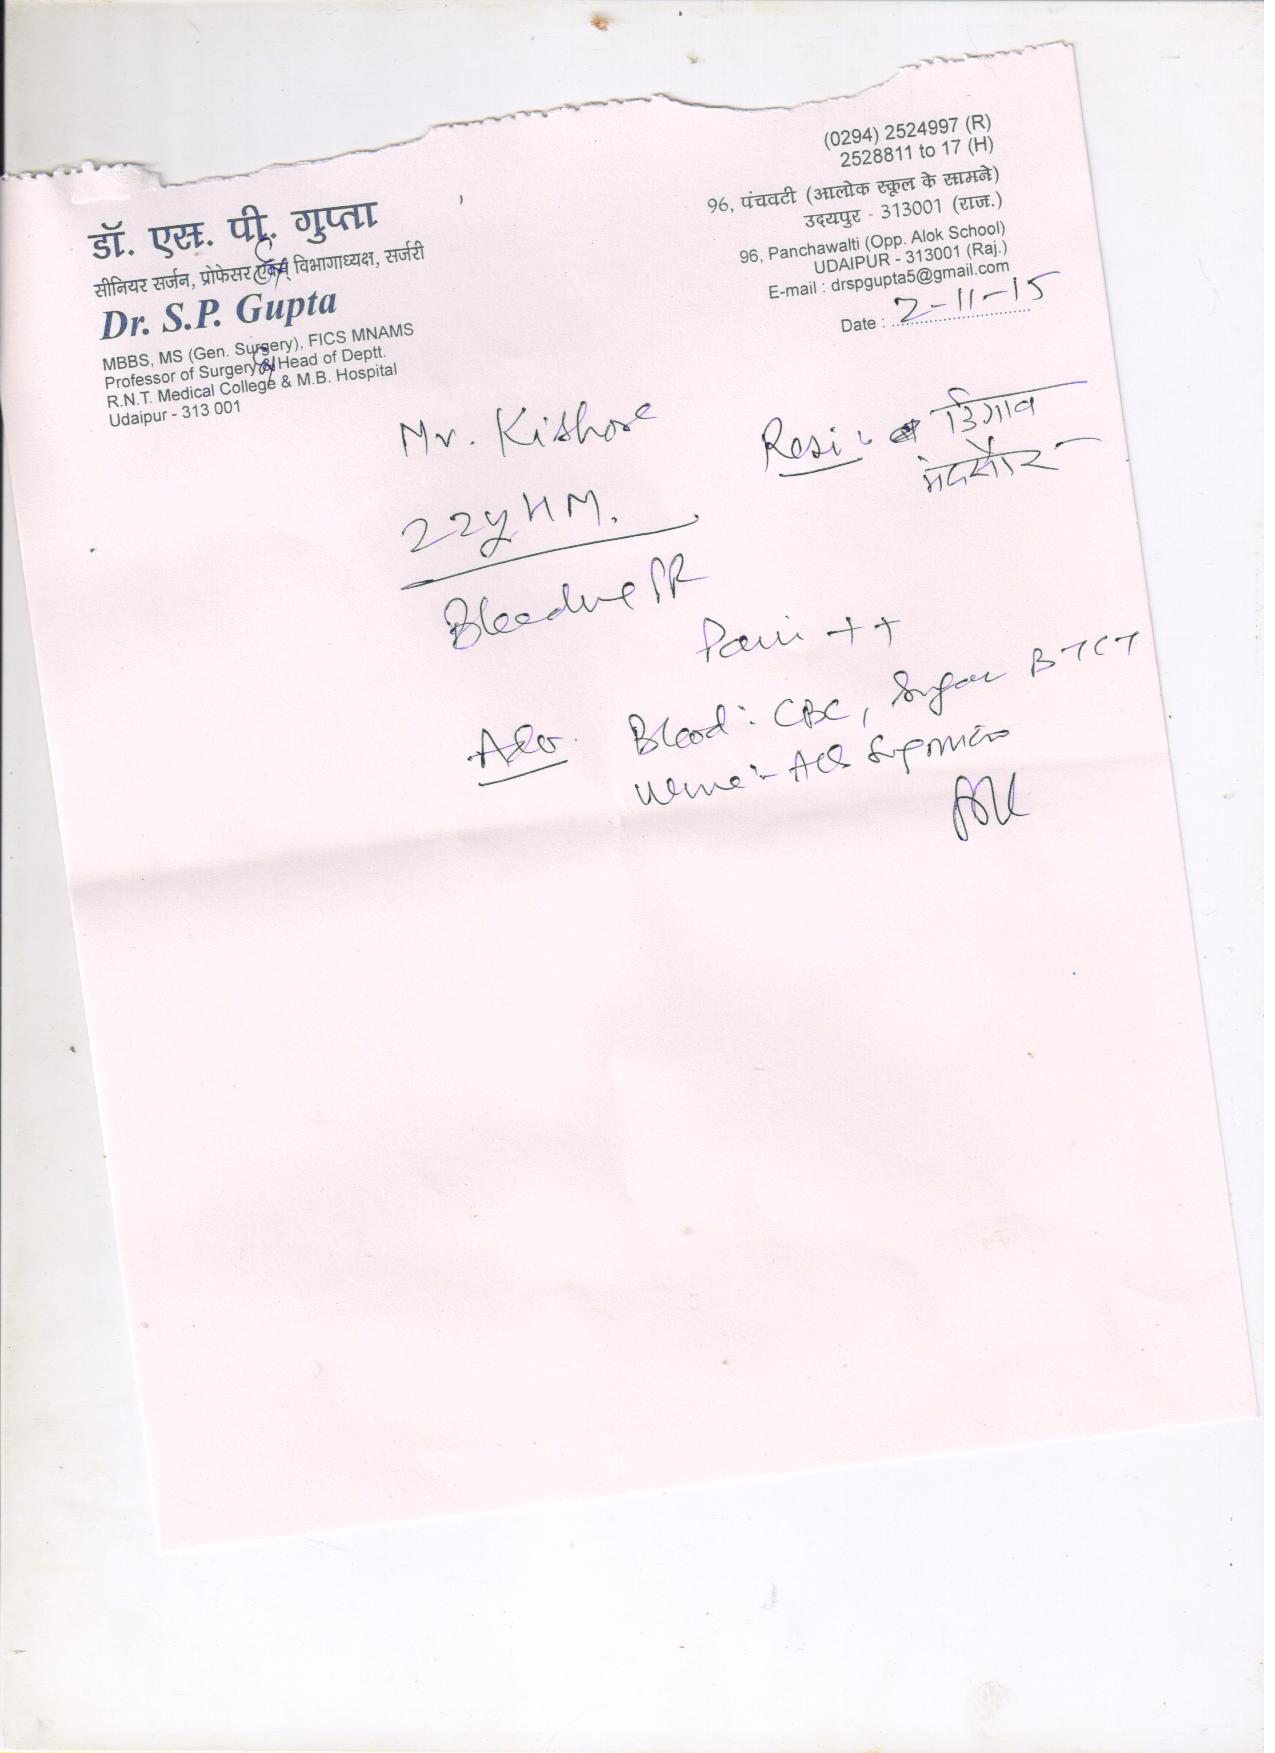 डॉ. एस. पी. गुप्ता
सीनियर सर्जन, प्रोफेसर एवम् विभागाध्यक्ष, सर्जरी
Dr. S.P. Gupta
MBBS, MS (Gen. Surgery), FICS MNAMS
Professor of Surgery & Head of Deptt.
R.N.T. Medical College & M.B. Hospital
Udaipur - 313 001
(0294) 2524997 (R)
2528811 to 17 (H)
96, पंचवटी (आलोक स्कूल के सामने)
उदयपुर - 313001 (राज.)
96, Panchawalti (Opp. Alok School)
UDAIPUR - 313001 (Raj.)
E-mail : drspgupta5@gmail.com
Date : 2-11-15
Mr. Kishore
Resi :
मंदसौर
22y HM.
Bleeding PR
Pain ++
Adv. Blood : CBC, Sugar BTCT
Urine :-